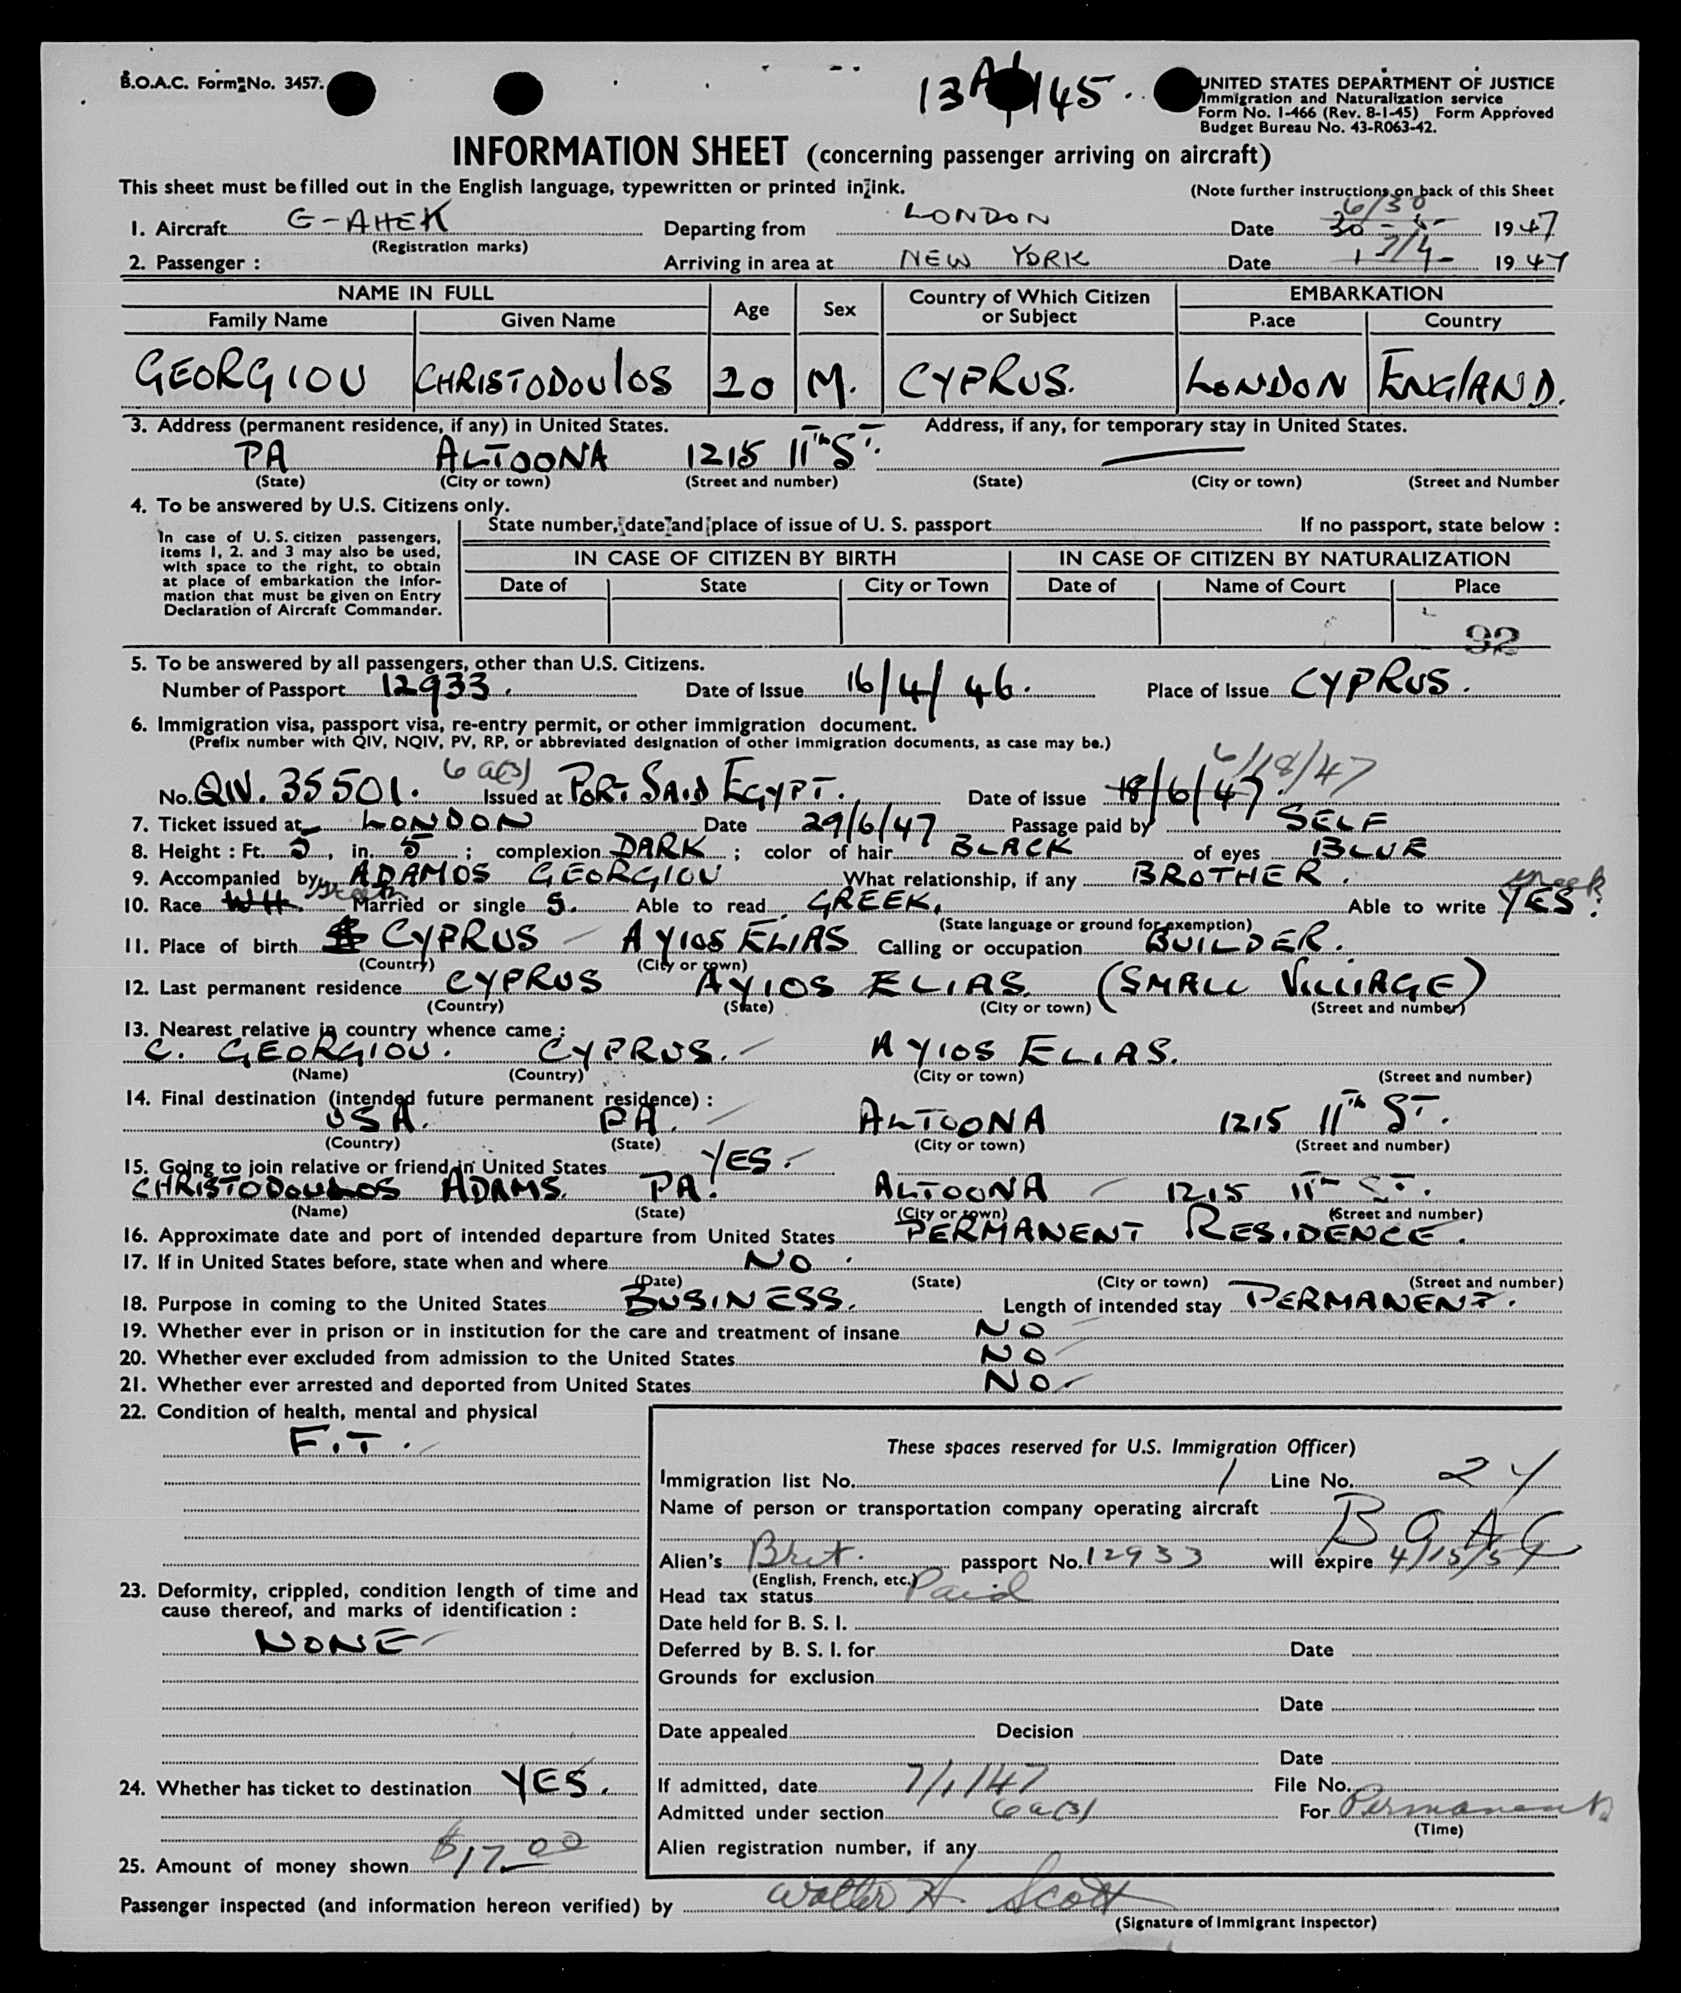 B.O.A.C. Form No. 3457.
13A/145.
UNITED STATES DEPARTMENT OF JUSTICE
Immigration and Naturalization service
Form No. I-466 (Rev. 8-1-45) Form Approved
Budget Bureau No. 43-R063-42.
INFORMATION SHEET (concerning passenger arriving on aircraft)
This sheet must be filled out in the English language, typewritten or printed in ink.
(Note further instructions on back of this Sheet
6/30
1. Aircraft G-AHEK Departing from LONDON Date 30-5- 1947
(Registration marks)
7/1
2. Passenger : Arriving in area at NEW YORK Date 1947
NAME IN FULL Age Sex Country of Which Citizen or Subject EMBARKATION
Family Name Given Name P.ace Country
GEORGIOU CHRISTODOULOS 20 M. CYPRUS. LONDON ENGLAND.
3. Address (permanent residence, if any) in United States. Address, if any, for temporary stay in United States.
PA ALTOONA 1215 11th ST. —
(State) (City or town) (Street and number) (State) (City or town) (Street and Number
4. To be answered by U.S. Citizens only.
In case of U. S. citizen passengers,
items 1, 2. and 3 may also be used,
with space to the right, to obtain
at place of embarkation the infor-
mation that must be given on Entry
Declaration of Aircraft Commander.
State number, date and place of issue of U. S. passport If no passport, state below :
IN CASE OF CITIZEN BY BIRTH IN CASE OF CITIZEN BY NATURALIZATION
Date of State City or Town Date of Name of Court Place
92
5. To be answered by all passengers, other than U.S. Citizens.
Number of Passport 12933. Date of Issue 16/4/46. Place of Issue CYPRUS.
6. Immigration visa, passport visa, re-entry permit, or other immigration document.
(Prefix number with QIV, NQIV, PV, RP, or abbreviated designation of other immigration documents, as case may be.)
6 a(3) 6/18/47
No. QIV. 35501. Issued at PORT SAID EGYPT. Date of issue 18/6/47.
7. Ticket issued at LONDON Date 29/6/47 Passage paid by SELF
8. Height : Ft. 5, in. 5 ; complexion DARK ; color of hair BLACK of eyes BLUE
9. Accompanied by ADAMOS GEORGIOU What relationship, if any BROTHER.
Greek Greek
10. Race WH. Married or single S. Able to read GREEK. Able to write YES.
(State language or ground for exemption)
11. Place of birth CYPRUS – AYIOS ELIAS Calling or occupation BUILDER.
(Country) (City or town)
12. Last permanent residence CYPRUS AYIOS ELIAS. (SMALL VILLIAGE)
(Country) (State) (City or town) (Street and number)
13. Nearest relative in country whence came :
C. GEORGIOU. CYPRUS. AYIOS ELIAS.
(Name) (Country) (City or town) (Street and number)
14. Final destination (intended future permanent residence) :
USA. PA. ALTOONA 1215 11th ST.
(Country) (State) (City or town) (Street and number)
15. Going to join relative or friend in United States YES.
CHRISTODOULOS ADAMS. PA. ALTOONA 1215 11th ST.
(Name) (State) (City or town) (Street and number)
16. Approximate date and port of intended departure from United States PERMANENT RESIDENCE.
17. If in United States before, state when and where NO.
(Date) (State) (City or town) (Street and number)
18. Purpose in coming to the United States BUSINESS. Length of intended stay PERMANENT.
19. Whether ever in prison or in institution for the care and treatment of insane NO
20. Whether ever excluded from admission to the United States NO
21. Whether ever arrested and deported from United States NO
22. Condition of health, mental and physical
FIT.
These spaces reserved for U.S. Immigration Officer)
Immigration list No. 1 Line No. 24
Name of person or transportation company operating aircraft
BOAC
Alien's Brit. passport No. 12933 will expire 4/15/51
(English, French, etc.)
Head tax status Paid
Date held for B. S. I.
Deferred by B. S. I. for Date
Grounds for exclusion
Date
Date appealed Decision
Date
If admitted, date 7/1/47 File No.
Admitted under section 6a(3) For Permanent
(Time)
Alien registration number, if any
23. Deformity, crippled, condition length of time and
cause thereof, and marks of identification :
NONE
24. Whether has ticket to destination YES.
25. Amount of money shown $17.00
Passenger inspected (and information hereon verified) by Walter H. Scott
(Signature of Immigrant Inspector)